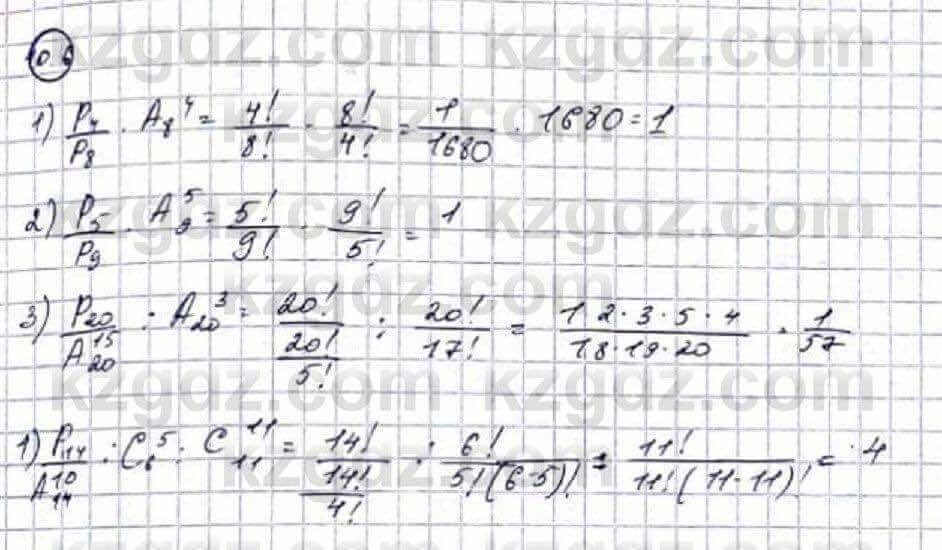 10.6
1) P₄/P₈ · A₈⁴ = 4!/8! · 8!/4! = 1/1680 · 1680 = 1
2) P₅/P₉ · A₉⁵ = 5!/9! · 9!/5! = 1
3) P₂₀/A₂₀¹⁵ : A₂₀³ = 20!/(20!/5!) : 20!/17! = 1 2·3·5·4/18·19·20 · 1/57
1) P₁₄/A₁₄¹⁰ : C₆⁵ : C₁₁¹¹ = 14!/(14!/4!) : 6!/5!(6-5)! = 11!/11!(11-11)! = 4
kzgdz.com kzgdz.com
kzgdz.com kzgdz.com
kzgdz.com kzgdz.com
kzgdz.com kzgdz.com
kzgdz.com kzgdz.com
kzgdz.com kzgdz.com
kzgdz.com kzgdz.com